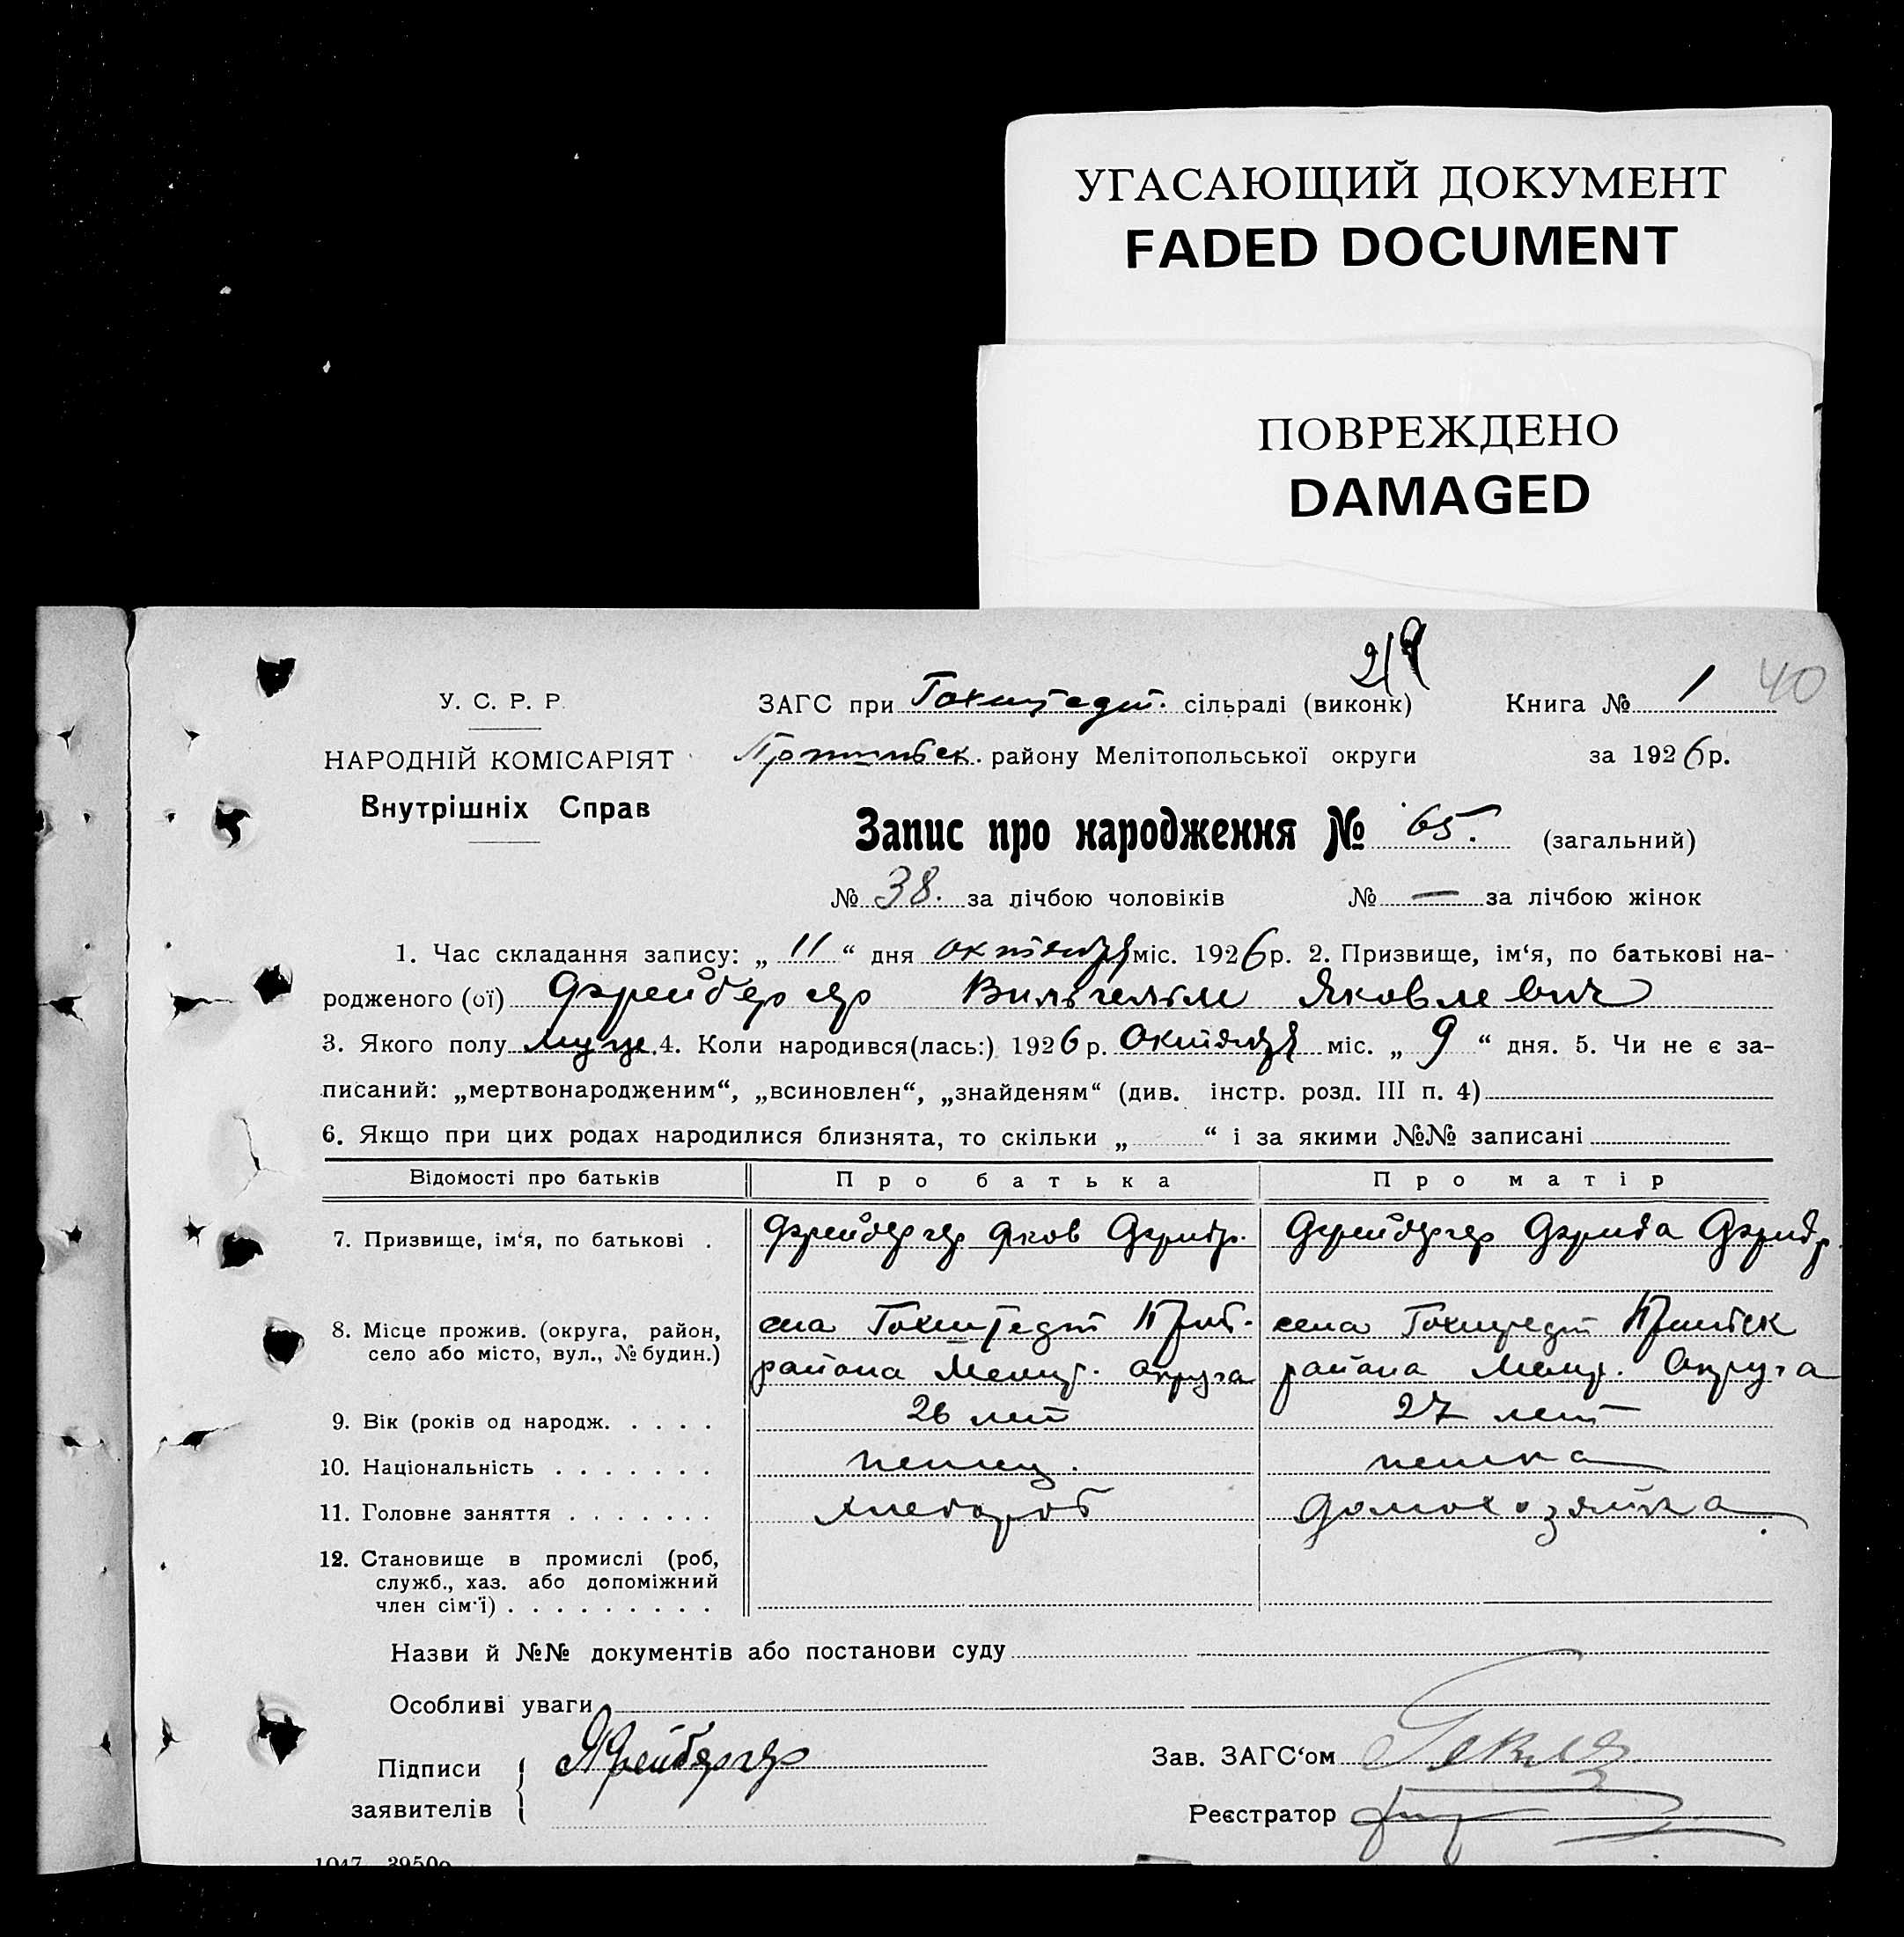 УГАСАЮЩИЙ ДОКУМЕНТ
FADED DOCUMENT
ПОВРЕЖДЕНО
DAMAGED
У. С. Р. Р.
НАРОДНІЙ КОМІСАРІЯТ
Внутрішніх Справ
ЗАГС при Гохштедт. сільраді (виконк)
Книга № 1 40
Пришибск. району Мелітопольської округи
за 1926 р.
Запис про народження № 65. (загальний)
№ 38. за лічбою чоловіків № — за лічбою жінок
1. Час складання запису: „ 11 “ дня октября міс. 1926 р. 2. Призвище, ім‘я, по батькові на-
родженого (ої) Фрейбергер Вильгельм Яковлевич
3. Якого полу муже. 4. Коли народився(лась:) 1926 р. Октября міс. „ 9 “ дня. 5. Чи не є за-
писаний: „мертвонародженим“, „всиновлен“, „знайденям“ (див. інстр. розд. III п. 4)
6. Якщо при цих родах народилися близнята, то скільки „ “ і за якими №№ записані
Відомості про батьків Про батька Про матір
7. Призвище, ім‘я, по батькові . Фрейбергер Яков Фридр. Фрейбергер Фрида Фридр.
8. Місце прожив. (округа, район, села Гохштедт Приб. села Гохштедт Пришибск
село або місто, вул., № будин.) района Мелит. округа района Мелит. Округа
9. Вік (років од народж. . . . . 26 лет 27 лет
10. Національність . . . . . . . немец. немка
11. Головне заняття . . . . . . . хлебороб домохозяйка
12. Становище в промислі (роб,
служб., хаз. або допоміжний
член сім‘ї) . . . . . . . . .
Назви й №№ документів або постанови суду
Особливі уваги
Підписи
заявителів
ЯФрейбергер
Зав. ЗАГС‘ом
Реєстратор
1047 39500